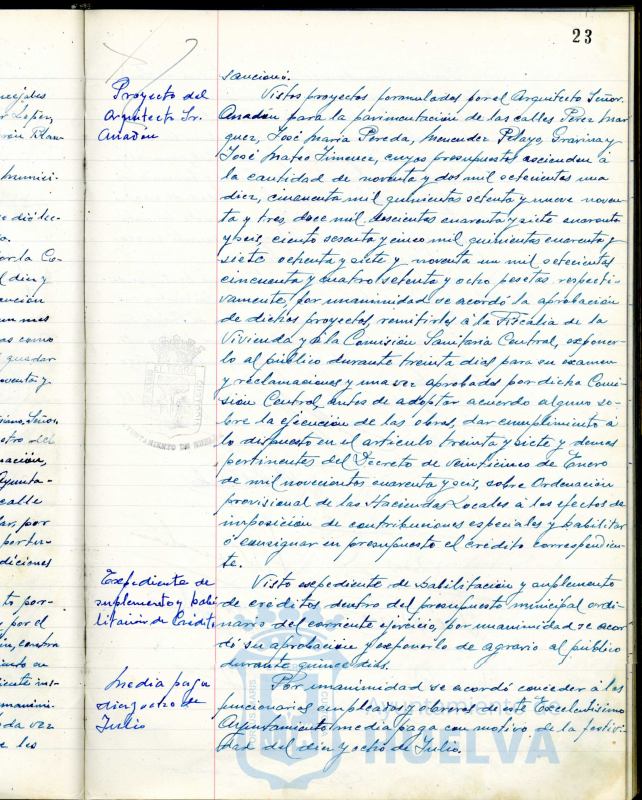 23
sancionó.
Proyecto del
Arquitecto Sr.
Anadón
Vistos proyectos formulados por el Arquitecto Señor
Anadón para la pavimentación de las calles Pérez Mar
quez, José María Pereda, Menendez Pelayo, Gravina y
José Mateo Jimenez, cuyos presupuestos ascienden á
la cantidad de noventa y dos mil setecientas una
diez, cincuenta mil quinientas setenta y nueve noven-
ta y tres, doce mil doscientas cuarenta y siete cuarenta
y seis, ciento sesenta y cinco mil quinientas cuarenta y
siete ochenta y siete y noventa un mil setecientas
cincuenta y cuatro setenta y ocho pesetas respecti-
vamente, por unanimidad se acordó la aprobación
de dichos proyectos, remitirlos á la Fiscalía de la
Vivienda y á la Comisión Sanitaria Central, exponer-
lo al público durante treinta días para su examen
y reclamaciones y una vez aprobados por dicha Comi-
sión Central, antes de adoptar acuerdo alguno so-
bre la ejecución de las obras, dar cumplimiento a
lo dispuesto en el artículo treinta y siete y demas
pertinentes del Decreto de veinticinco de Enero
de mil novecientos cuarenta y seis, sobre Ordenación
provisional de las Haciendas Locales á los efectos de
imposición de contribuciones especiales y habilitar
ó consignar en presupuesto el crédito correspondien-
te.
Expediente de
suplemento y habi
litación de Crédito
Visto expediente de habilitación y suplemento
de creditos dentro del presupuesto municipal ordi-
nario del corriente ejercicio, por unanimidad se acor
dó su aprobación y exponerlo de agravio al público
durante quince días.
Media paga
diez y ocho de
Julio
Por unanimidad se acordó conceder á los
funcionarios empleados y obreros de este Excelentisimo
Ayuntamiento media paga con motivo de la festivi-
dad del diez y ocho de Julio.
Ayuntamiento
HUELVA